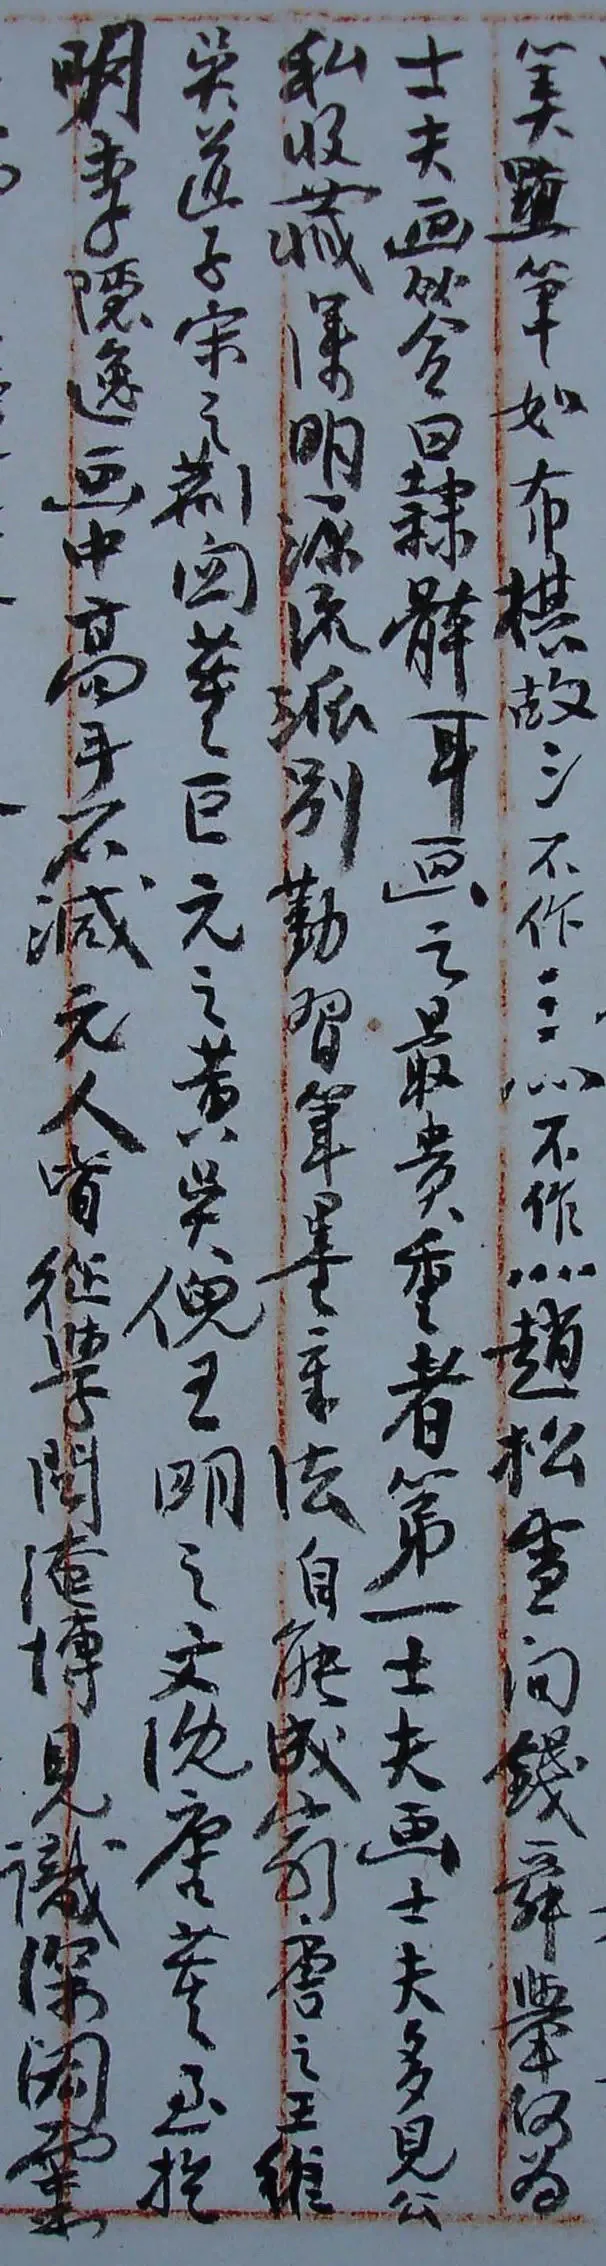 算點筆如布棋故三不作三、心不作灬趙松雪问錢舜舉何为
士夫画答曰隸體耳画之最貴重者第一士夫画士夫多見公
私收藏深明源流派别勤習筆墨章法自能成家唐之王維
吳道子宋之荆關董巨元之黄吳倪王明之文沈唐董至於
明季隱逸画中高手不減元人皆從學問淹博見識深闊業